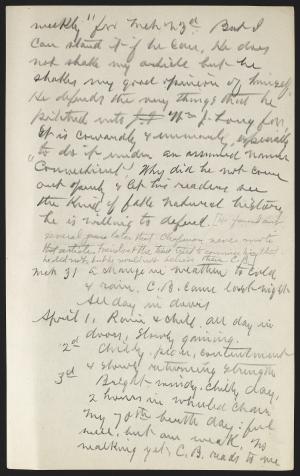 weekly" for Mch 23d. But I
can stand it if he can. He does
not shake my article but he
shakes my good opinion of himself.
He defends the very things that he
pitched into Wm J. Long for.
It is cowardly & unmanly, especially
to do it under an assumed name
"Connecticut". Why did he not come
out openly & let his readers see
the kind of fake natural history
he is willing to defend. [He found out
several years later that Chapman never wrote
that article,
he did not, but he would not believe them. C.B.]
Mch 31 A change in weather to cold
& rain. C.B. came last night
All day in doors
April 1, Rain & chill, all day in
doors, slowly gaining.
2d Chilly, peace, contentment
& slowly returning strength
3d Bright windy, chilly day,
2 hours in wheeled chair
My 70th birth day; feel
well, but am weak. No
walking yet, C.B. reads to me